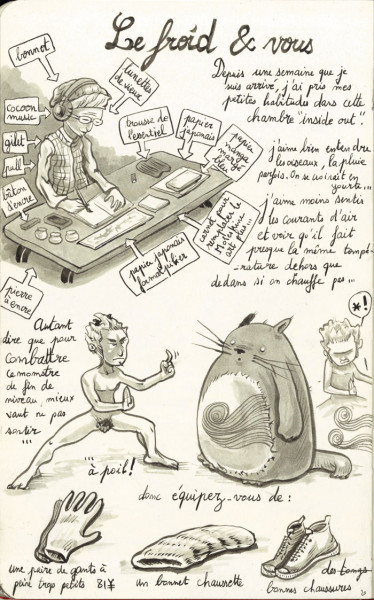 Le froid & vous
bonnet
lunettes
de vieux
cocoon
music
gilet
pull
bâton
d'encre
pierre
à encre
trousse de
l'essentiel
papier
japonais
papier
manga
margé
bleu
carnet pour
remplacer le
Moleskine
art plus...
papier japonais
format pilier
Depuis une semaine que je
suis arrivé, j'ai pris mes
petites habitudes dans cette
chambre "inside out".
j'aime bien entendre
les oiseaux, la pluie
parfois. On se croirait en
yourte...
j'aime moins sentir
les courants d'air
et voir qu'il fait
presque la même tempé-
-rature dehors que
dedans si on chauffe pas...
Autant
dire que pour
combattre
ce monstre
de fin de
niveau mieux
vaut ne pas
sortir
...
à poil!
*!
donc équipez-vous de :
une paire de gants à
peine trop petits 81¥
un bonnet chaussette
des tongs
bonnes chaussures